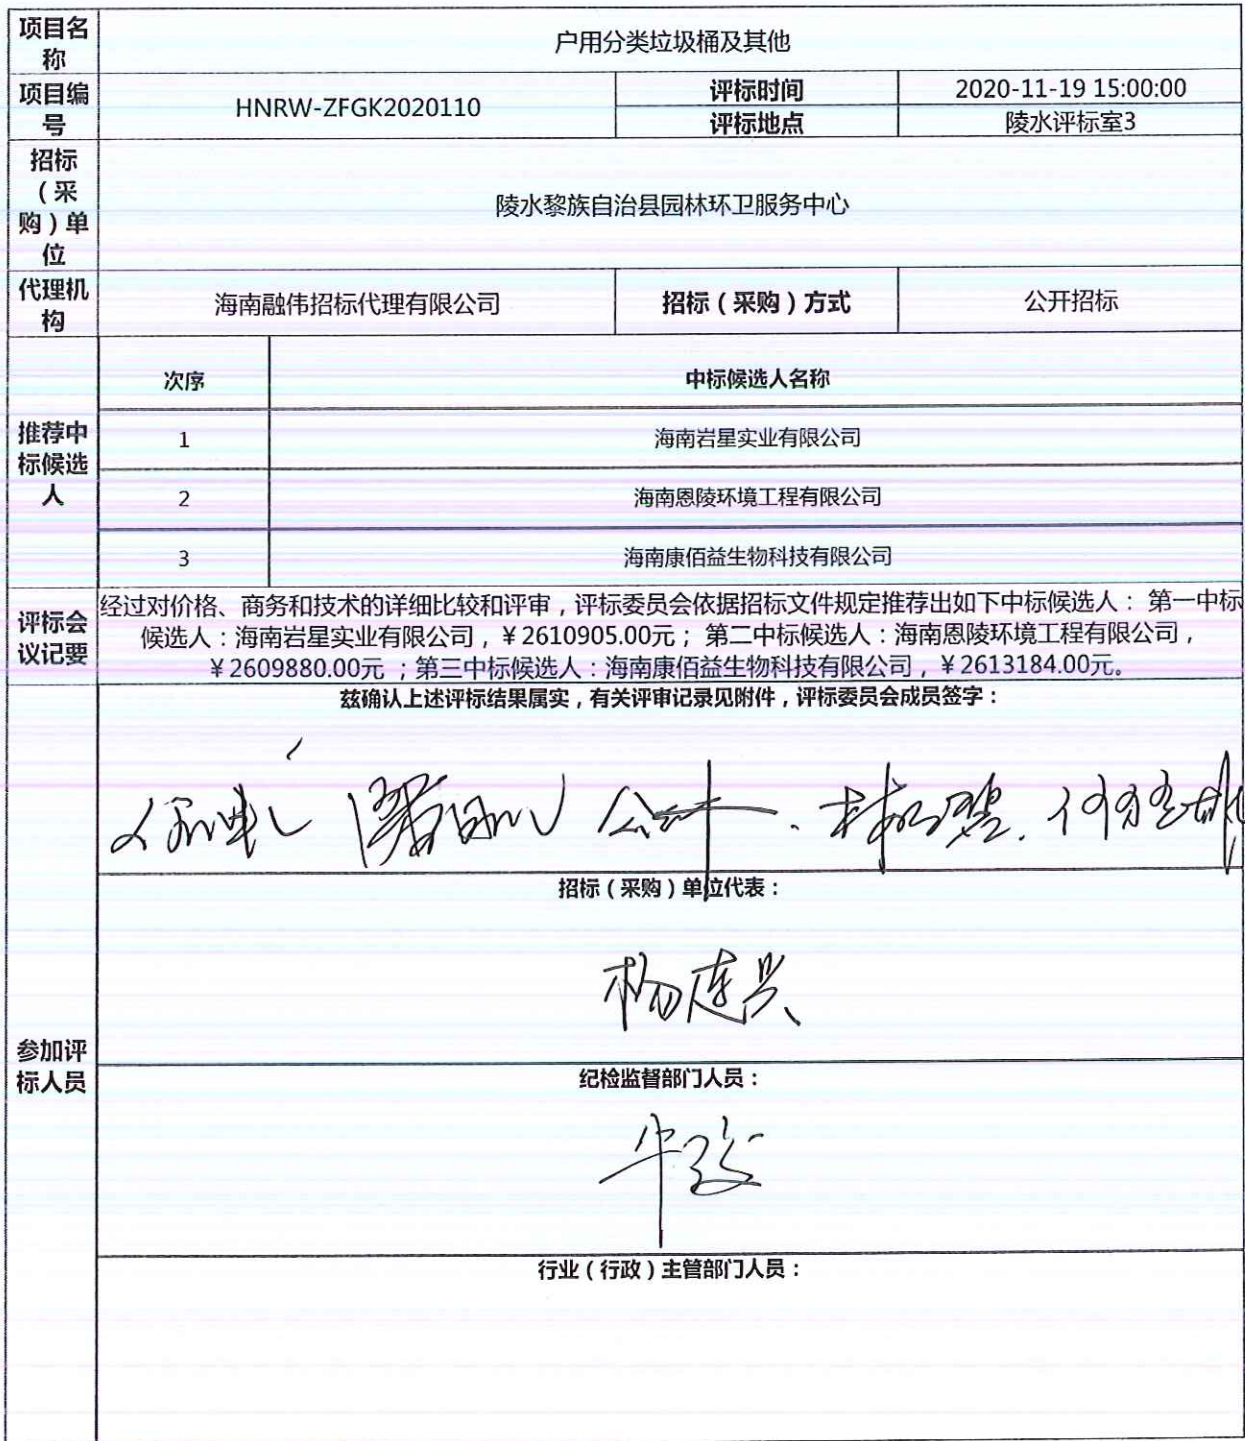 项目名称
户用分类垃圾桶及其他
项目编号
HNRW-ZFGK2020110
评标时间
2020-11-19 15:00:00
评标地点
陵水评标室3
招标（采购）单位
陵水黎族自治县园林环卫服务中心
代理机构
海南融伟招标代理有限公司
招标（采购）方式
公开招标
推荐中标候选人
次序
中标候选人名称
1
海南岩星实业有限公司
2
海南恩陵环境工程有限公司
3
海南康佰益生物科技有限公司
评标会议记要
经过对价格、商务和技术的详细比较和评审，评标委员会依据招标文件规定推荐出如下中标候选人： 第一中标
候选人：海南岩星实业有限公司，￥2610905.00元； 第二中标候选人：海南恩陵环境工程有限公司，
￥2609880.00元 ；第三中标候选人：海南康佰益生物科技有限公司，￥2613184.00元。
参加评标人员
兹确认上述评标结果属实，有关评审记录见附件，评标委员会成员签字：
招标（采购）单位代表：
纪检监督部门人员：
行业（行政）主管部门人员：